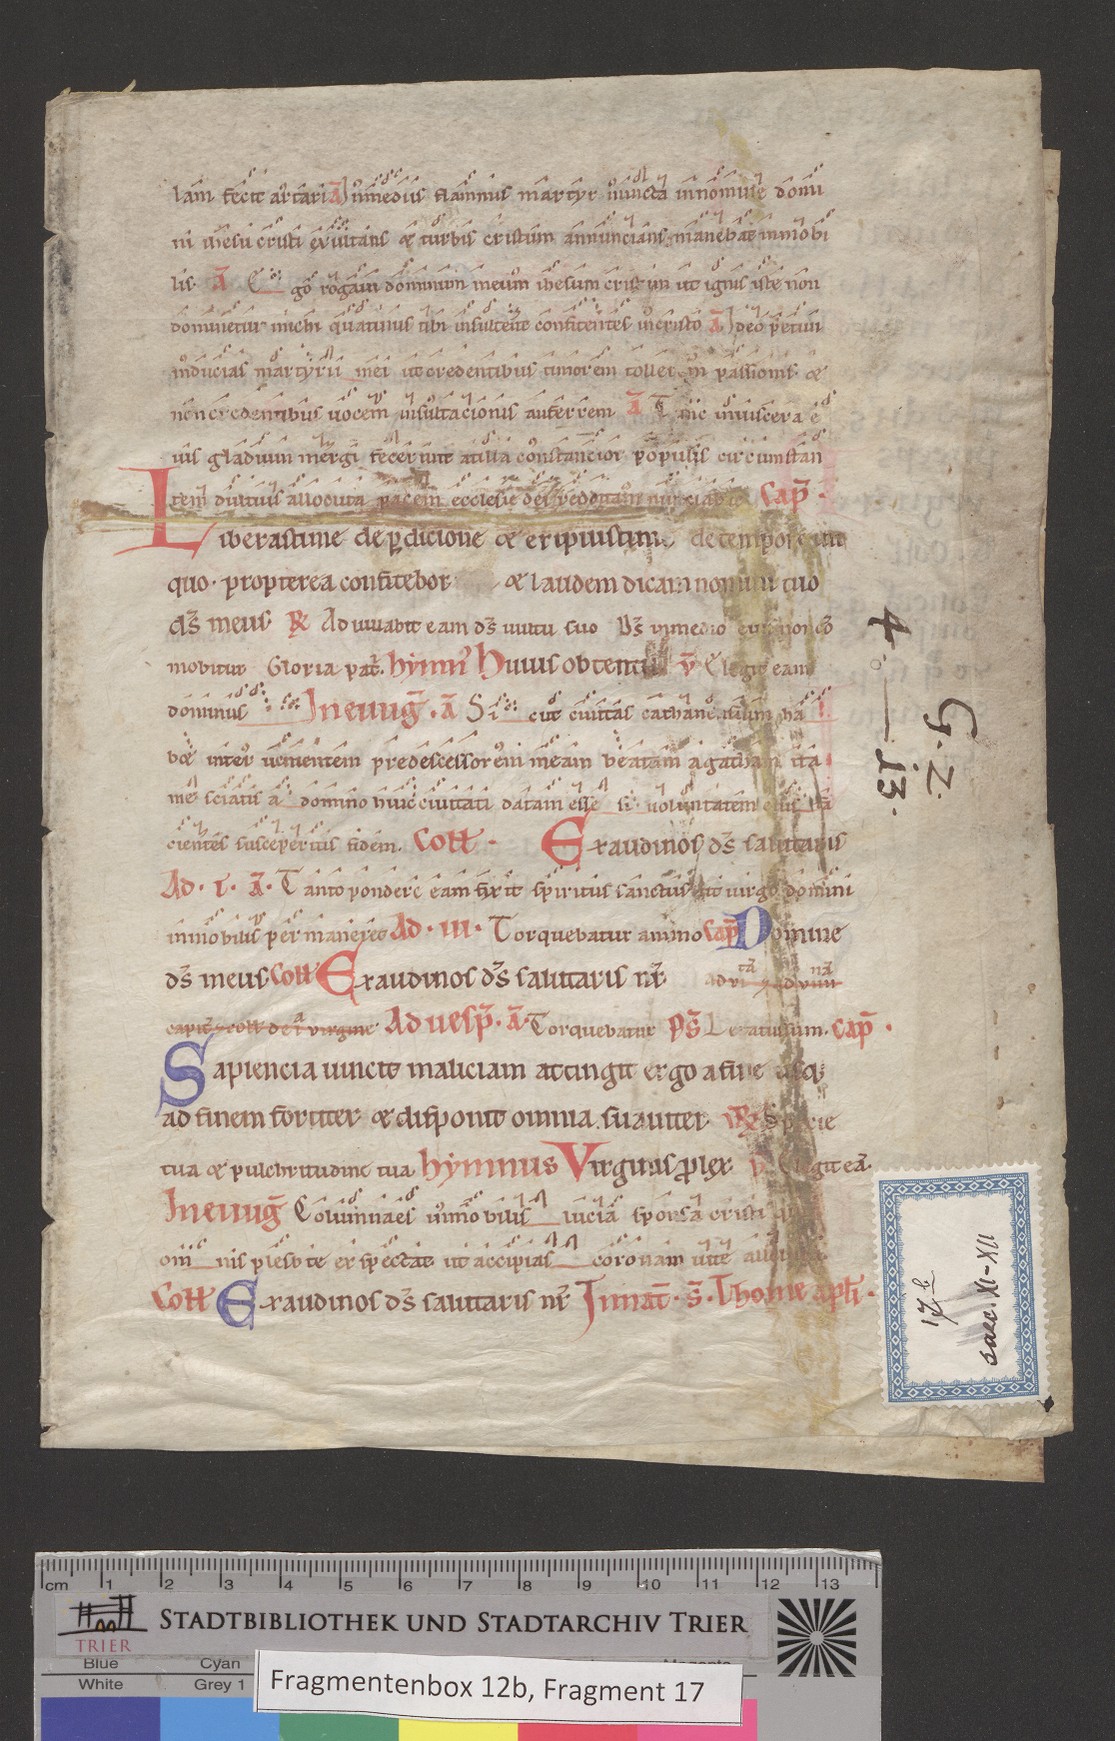 lam fecit artari A Inmedius flammis martyr iuncta innomine domi
ni ihesu cristi exuitans & turbis cristum annuncians manebat inmobi
lis. A Ego rogaui dominum meum ihesum cristum ut ignis iste non
dominetur michi quatinus tibi insultente confitentes incristo A Ideo petiui
inducias martyrii mei ut credentibus timorem tollerem passionis &
non credentibus uocem insultacionis auferrem A Tunc inuiscera e
uis gladium mergi fecerunt at illa constancior populis circumstan
tem diutius allocuta pacem ecclesie dei redditam nunciabit Cap̄.
Liberastime de p̄dicione & eripuistime de tempore ini
quo. propterea confitebor & laudem dicam nomini tuo
d̄s meus. R̄ Adiuuabit eam d̄s uultu suo D̄s inmedio eius non cō
mobitur Gloria pat̄. hymn̄ Huius obtentu v̄ Elegit eam
dominus In euuḡ. ā Sicut ciuitas cathanensium ha
b& inter uenientem predescessorem meam beatam agatham ita
me sciatis a domino huic ciuitati datam esse si uoluntatem eius fa
cientes susceperitis fidem. Coll. Exaudinos d̄s salutaris
Ad. I. ā. Tanto pondere eam fixit spiritus sanctus ut virgo domini
inmobilis permaneret Ad. III. Torquebatur animo Cap̄ Domine
d̄s meus. Coll Exaudinos d̄s salutaris nr̄
Ad uesp̄. ā. Torquebatur p̄s Letatus sum. Cap̄.
Sapiencia uincit maliciam attingit ergo a fine usq;
ad finem fortiter & disponit omnia suauiter R̄ Specie
tua & pulchritudine tua hymnus Virginis proles v̄ Elegit eā.
In euuḡ Columnaes inmobilis lucia sponsa cristi
omnis plebs te expectat ut accipias coronam uite
Coll Exaudinos d̄s salutaris nr̄ In nat̄. s̄. Thome apl̄i.
4. — 13.
G. Z.
17 b
saec. XI-XII
cm 1 2 3 4 5 6 7 8 9 10 11 12 13
TRIER
STADTBIBLIOTHEK UND STADTARCHIV TRIER
Blue Cyan
White Grey 1
Fragmentenbox 12b, Fragment 17